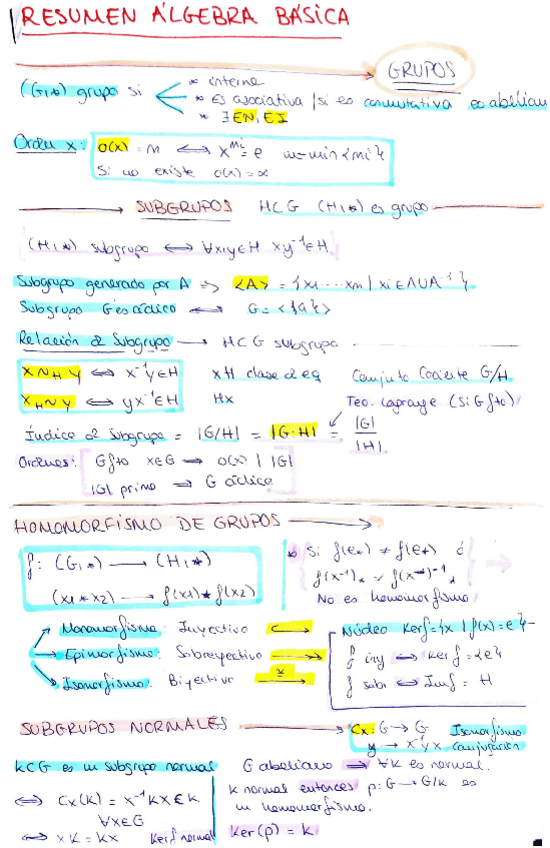 RESUMEN ÁLGEBRA BÁSICA
GRUPOS
(G,*) grupo si
* interna
* es asociativa / si es conmutativa es abeliano
* ∃ EN, EI
Orden x: o(x) = m ⟺ x^mi = e m = min{mi}
Si no existe o(x) = ∞
SUBGRUPOS H⊂G (H,*) es grupo
(H,*) subgrupo ⟺ ∀x,y∈H xy⁻¹∈H
Subgrupo generado por A → <A> = {x1....xm / xi∈A∪A⁻¹}
Subgrupo G es cíclico ⟺ G = <{a}>
Relación d Subgrupo → H⊂G subgrupo
x ~H y ⟺ x⁻¹y∈H xH clase d eq Conjunto Cociente G/H
x H~ y ⟺ yx⁻¹∈H Hx Teo. Lagrange (Si G fto)
Índice d Subgrupo = |G/H| = |G:H| = |G| / |H|
Ordenes: G fto x∈G → o(x) | |G|
|G| primo → G cíclico
HOMOMORFISMO DE GRUPOS
f: (G,*) → (H,*)
(x1*x2) → f(x1)*f(x2)
* Si f(e*) ≠ f(e*) ó
f(x⁻¹)* ≠ f(x)⁻¹*
No es homomorfismo
Monomorfismo: Inyectivo
Epimorfismo: Sobreyectivo
Isomorfismo: Biyectivo ≅
Núcleo Kerf = {x / f(x) = e}
f iny ⟺ Kerf = {e}
f sobr ⟺ Imf = H
SUBGRUPOS NORMALES
Cx: G → G Isomorfismo
y → x⁻¹yx Conjugación
K⊂G es un subgrupo normal
⟺ Cx(K) = x⁻¹Kx ∈ K
∀x∈G
⟺ xK = Kx Kerf normal
G abeliano ⟹ ∀K es normal.
K normal entonces p: G → G/K es
un homomorfismo.
Ker(p) = K